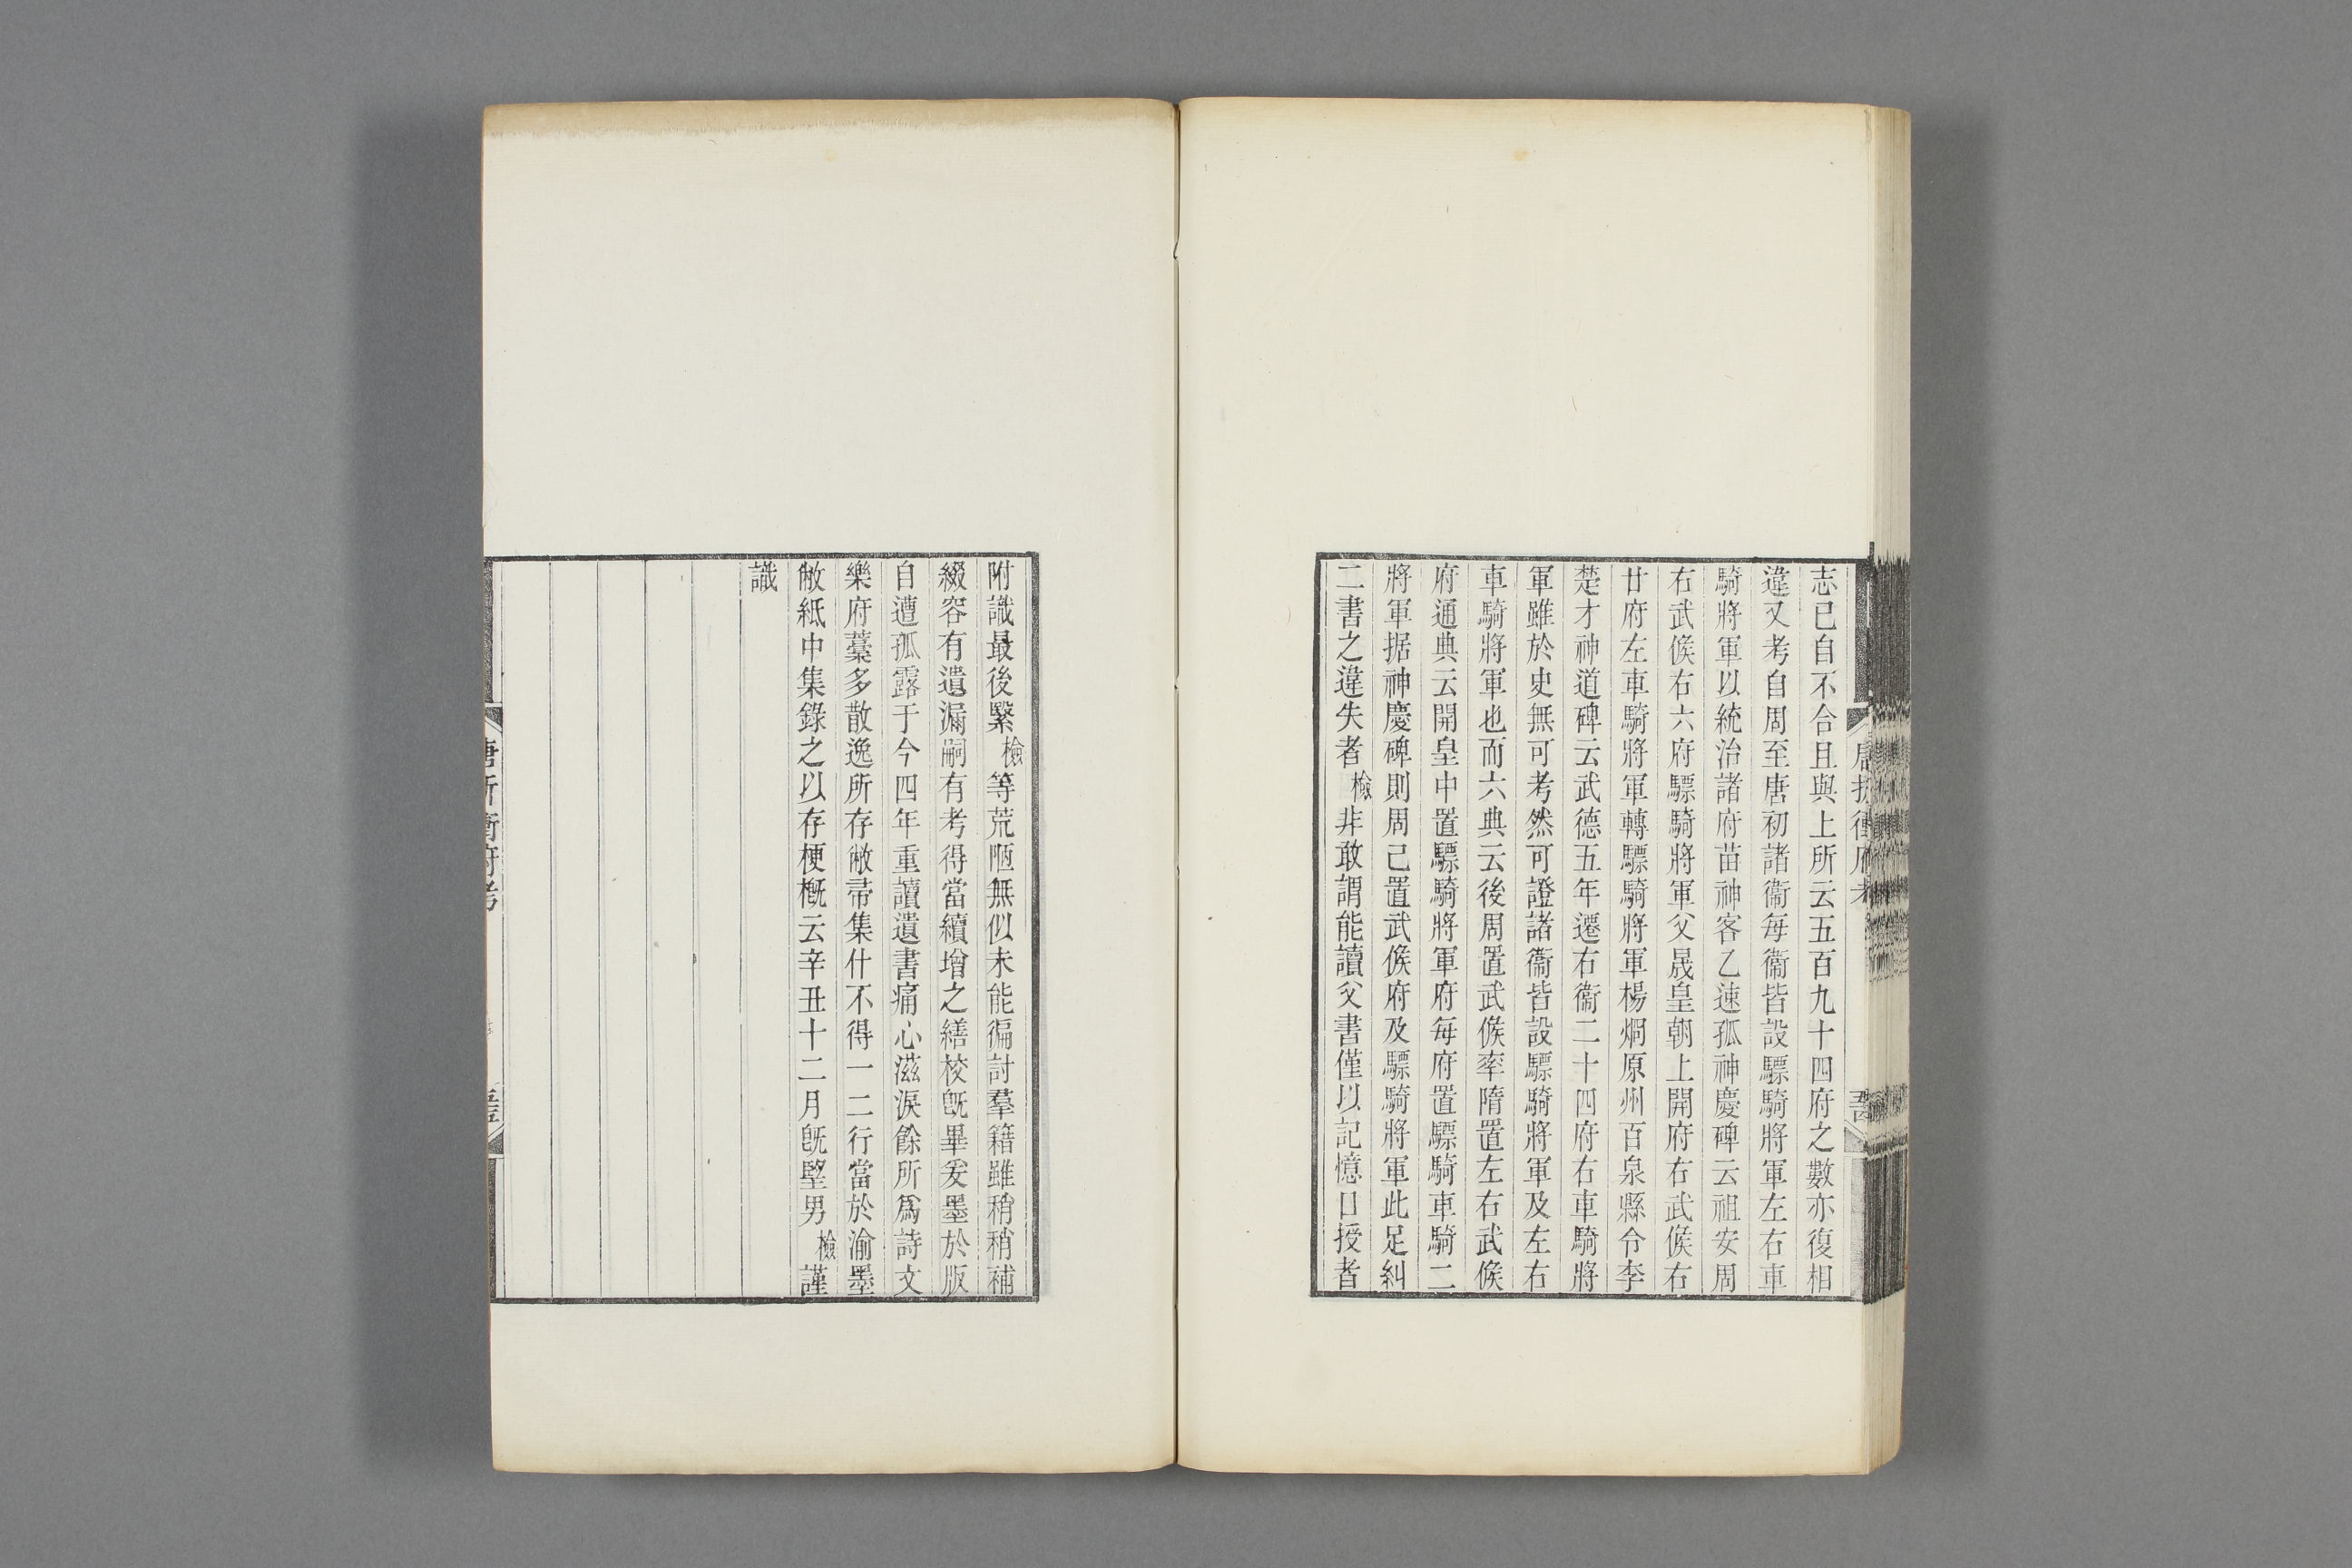 志已自不合且與上所云五百九十四府之數亦復相
違又考自周至唐初諸衞每衞皆設驃騎將軍左右車
騎將軍以統治諸府苗神客乙速孤神慶碑云祖安周
右武候右六府驃騎將軍父晟皇朝上開府右武候右
廿府左車騎將軍轉驃騎將軍楊烱原州百泉縣令李
楚才神道碑云武德五年遷右衞二十四府右車騎將
軍雖於史無可考然可證諸衞皆設驃騎將軍及左右
車騎將軍也而六典云後周置武候率隋置左右武候
府通典云開皇中置驃騎將軍府每府置驃騎車騎二
將軍据神慶碑則周已置武候府及驃騎將軍此足糾
二書之違失者檢非敢謂能讀父書僅以記憶口授者
附識最後緊檢等荒陋無似未能徧討羣籍雖稍稍補
綴容有遺漏嗣有考得當續增之繕校旣畢爰墨於版
自遭孤露于今四年重讀遺書痛心滋淚餘所爲詩文
樂府藁多散逸所存敝帚集什不得一二行當於渝墨
敝紙中集錄之以存梗槪云辛丑十二月旣塈男檢謹
識
唐折衝府考